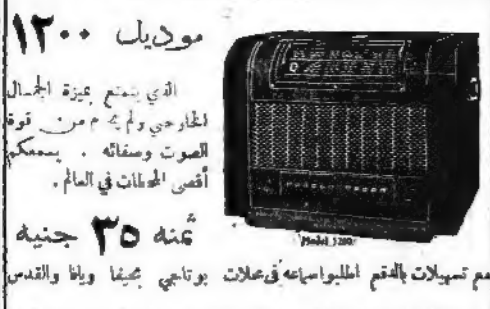 موديل ١٢٠٠
الذي يتمتع بميزة الجمال
الخارجي ولم من قوة
الصوت وصفائه . يسمعكم
أقصى المحطات في العالم .
ثمنه ٣٥ جنيه
Model 1200
مع تسهيلات بالدفع اطلبوا سماعه في محلات بوتاجي بحيفا ويافا والقدس